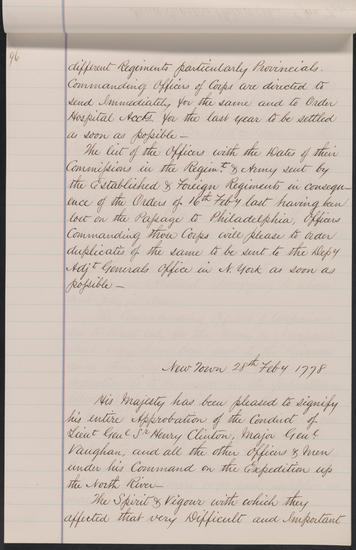 96
different Regiments particularly Provincials.
Commanding Officers of Corps are directed to
send Immediately for the same and to Order
Hospital Accts. for the last year to be settled
as soon as possible —
The list of the Officers with the Dates of their
Commissions in the Regimt. & Army sent by
the Established & Foreign Regiments in consequ-
ence of the Orders of 16th Feby last having been
lost on the Passage to Philadelphia, Officers
Commanding those Corps will please to order
duplicates of the same to be sent to the Depy
Adjt Generals Office in N. York as soon as
possible —
New Town 28th Feby 1778
His Majesty has been pleased to signify
his entire Approbation of the Conduct of
Lieut Genl Sr Henry Clinton, Major Genl
Vaughan, and all the other Officers & Men
under his Command on the Expedition up
the North River —
The Spirit & Vigour with which they
affected that very Difficult and Important